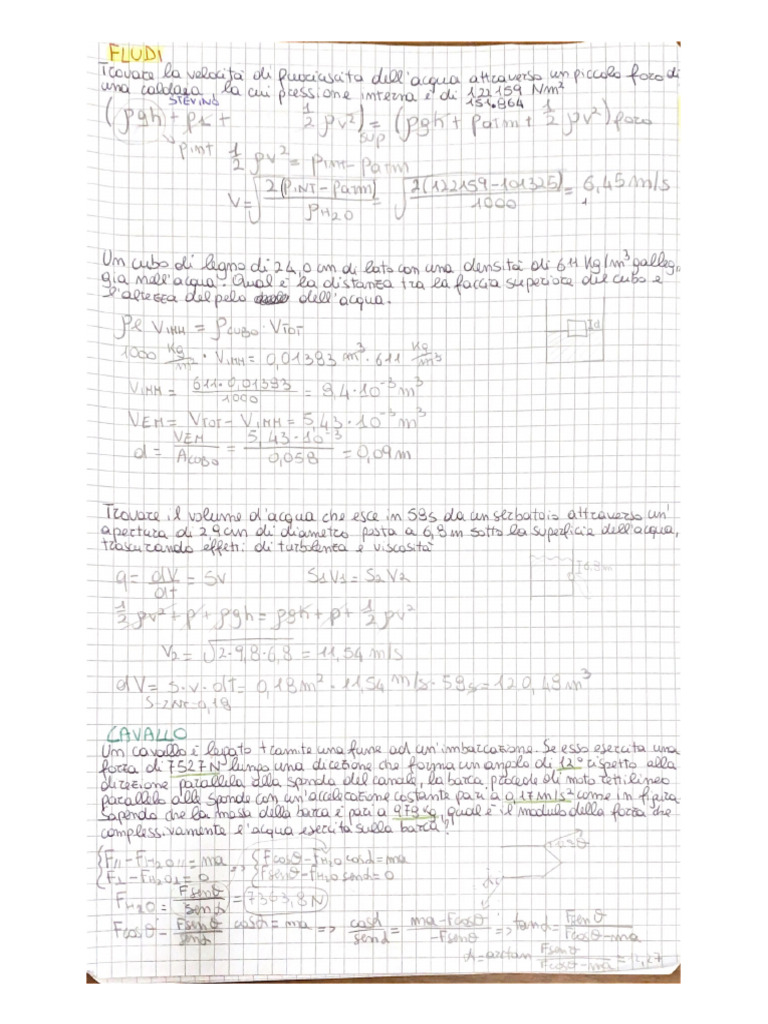 FLUDI
Trovare la velocità di fuoriuscita dell'acqua attraverso un piccolo foro di
una caldaia, la cui pressione interna è di 122159 N/m²
STEVINO 151.864
(ρgh) + p1 + 1/2 ρv²)sup = (ρgh + patm + 1/2 ρv²)foro
pint 1/2 ρv² = pINT - patm
V = √(2(pINT - patm)/ρH2O) = √(2(122159-101325)/1000) = 6,45 m/s
Un cubo di legno di 24,0 cm di lato con una densità di 611 Kg/m³ galleg
gia nell'acqua. Qual è la distanza tra la faccia superiore del cubo e
l'altezza del pelo dell'acqua.
ρe VIMM = ρCUBO · VTOT
Id
1000 Kg/m³ · VIMM = 0,01393 m³ · 611 Kg/m³
VIMM = 611·0,01393/1000 = 8,4·10⁻³ m³
VEM = VTOT - VIMM = 5,43·10⁻³ m³
d = VEM/ACUBO = 5,43·10⁻³/0,058 = 0,09m
Trovare il volume d'acqua che esce in 59s da un serbatoio attraverso un'
apertura di 2,9 cm di diametro posta a 6,8 m sotto la superficie dell'acqua,
trascurando effetti di turbolenza e viscosità
q = dV/dt = Sv S1V1 = S2V2
1/2 ρv² + p + ρgh = ρgh + p + 1/2 ρv²
V2 = √2·9,8·6,8 = 11,54 m/s
dV = S·v·dt = 0,18m² · 11,54 m/s · 59s = 120,49 m³
S=2πr=0,18
CAVALLO
Un cavallo è legato tramite una fune ad un'imbarcazione. Se esso esercita una
forza di 7527 N lungo una direzione che forma un angolo di 12° rispetto alla
direzione parallela alla sponda del canale, la barca procede di moto rettilineo
parallelo alle sponde con un'accelerazione costante pari a 0,17 m/s² come in figura
Sapendo che la massa della barca è pari a 979 Kg, qual è il modulo della forza che
complessivamente l'acqua esercita sulla barca?
{F∥ - FH2O∥ = ma => {Fcosθ - FH2O cosα = ma
{F⊥ - FH2O⊥ = 0 {Fsenθ - FH2O senα = 0
FH2O = Fsenθ/senα = 7363,8 N
Fcosθ - Fsenθ/senα cosα = ma => cosα/senα = ma-Fcosθ/-Fsenθ => tanα = Fsenθ/Fcosθ-ma
α = arctan Fsenθ/Fcosθ-ma = 12,27